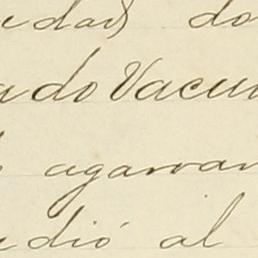 edad do
ado Vacu
agarra
dió al